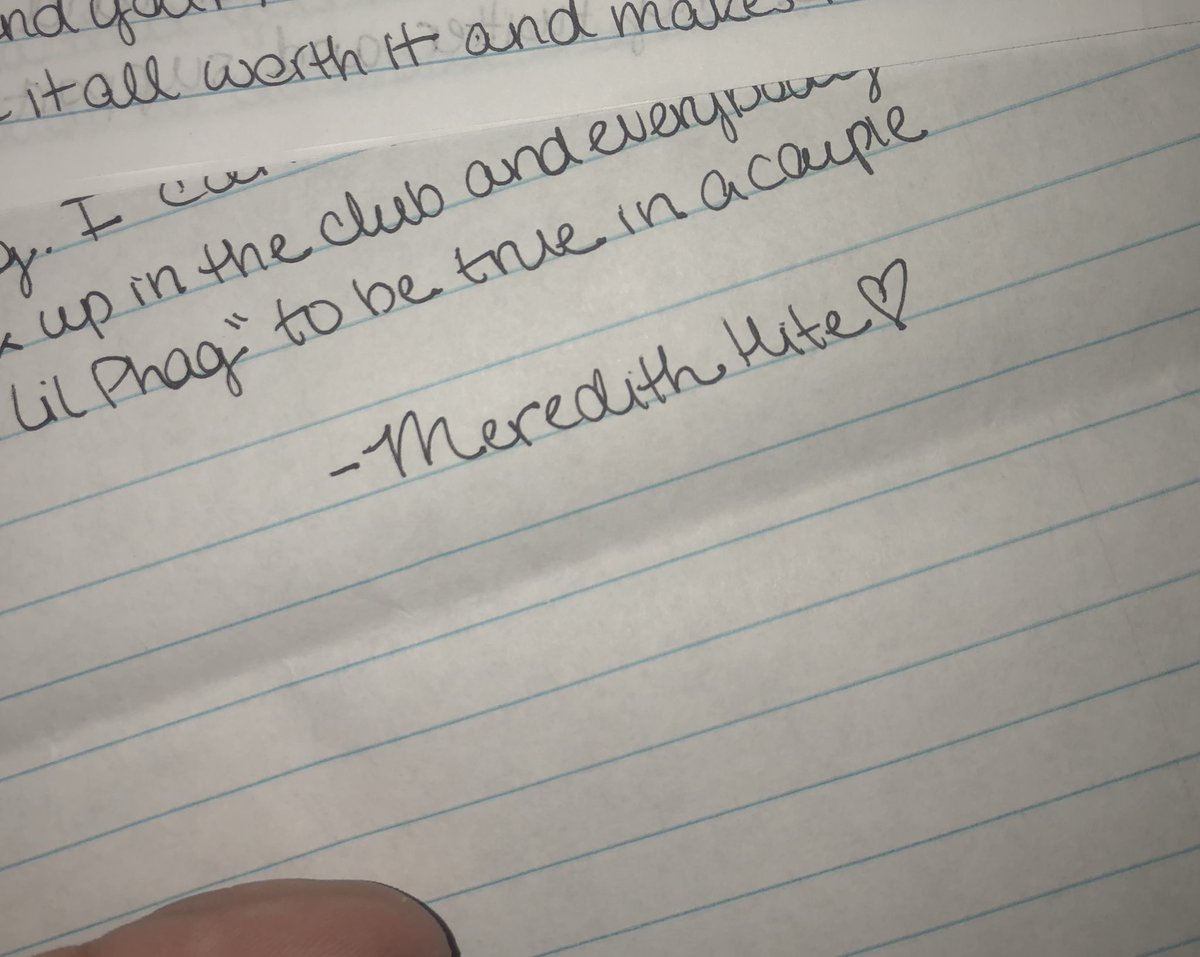 it all worth it and makes
I
up in the club and everybody
Lil Phag" to be true in a couple
-Meredith Hite♡